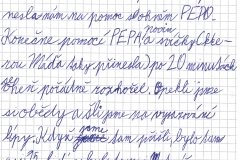 nesla nám na pomoc s ohněm PEPO.
Konečně pomocí PEPA a novin svíčky (kte-
rou Máďa taky přinesla) po 20 minutách
oheň pořádně rozhořel. Opekli jsme
si obědy a šli jsme na
lípy. Když jsme tam přišli, bylo tam